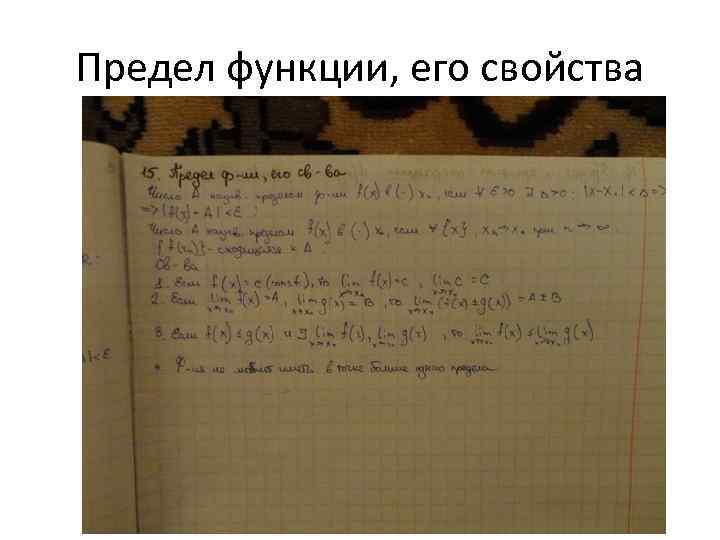 Предел функции, его свойства
15. Предел ф-ии, его св-ва
Число А назыв. пределом ф-ии f(x) в (·) x₀, если ∀ Ɛ>0 ∃ Δ>0: |x-x₀|<Δ =>
=> |f(x)-A|<Ɛ
Число А назыв. пределом f(x) в (·) x₀, если ∀ {x}, xₙ→x₀ при n→∞
{f(xₙ)}-сходящаяся к А
Св-ва
1. Если f(x)=c (const), то lim f(x)=c, lim c = c
2. Если lim f(x)=A, lim g(x)=B, то lim (f(x)±g(x))=A±B
3. Если f(x)≤g(x) и ∃ lim f(x), lim g(x), то lim f(x) ≤ lim g(x)
Ф-ия не может иметь в точке больше одного предела
|<Ɛ